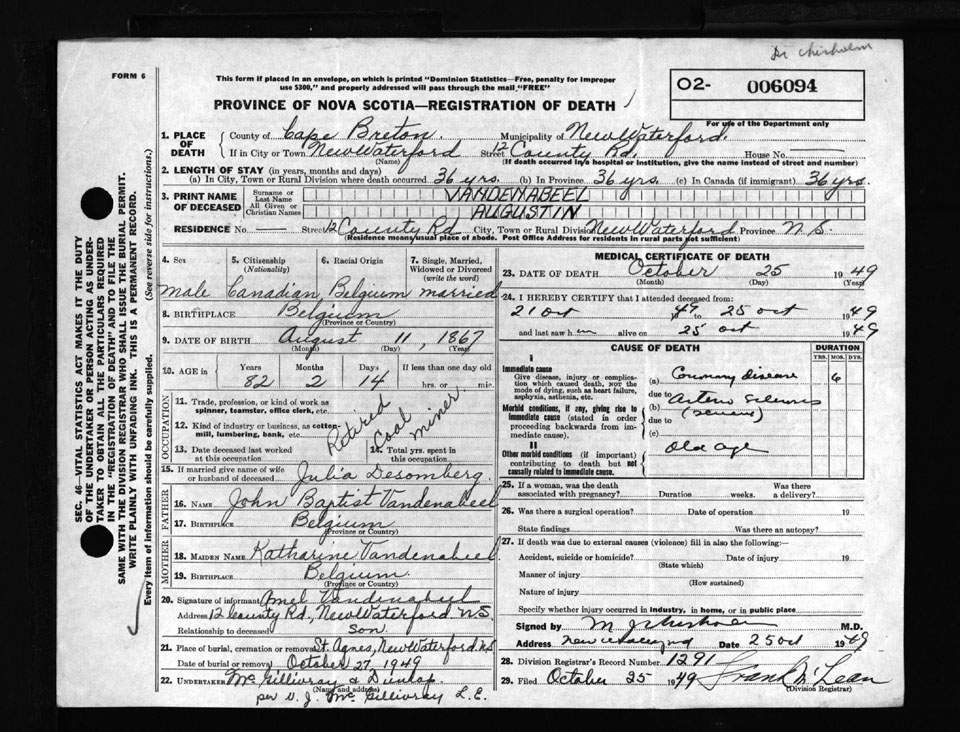 Dr Chisholm
FORM 6
This form if placed in an envelope, on which is printed "Dominion Statistics—Free, penalty for improper
use $300," and properly addressed will pass through the mail "FREE"
O2- 006094
PROVINCE OF NOVA SCOTIA—REGISTRATION OF DEATH
For use of the Department only
1. PLACE OF DEATH
County of Cape Breton Municipality of New Waterford.
If in City or Town New Waterford Street 12 County Rd. House No. —
(Name) (If death occurred in a hospital or institution, give the name instead of street and number)
2. LENGTH OF STAY (in years, months and days)
(a) In City, Town or Rural Division where death occurred 36 yrs. (b) In Province 36 yrs. (c) In Canada (if immigrant) 36 yrs.
3. PRINT NAME OF DECEASED
Surname or Last Name VANDENABEEL
All Given or Christian Names AUGUSTIN
RESIDENCE No. — Street 12 County Rd City, Town or Rural Division New Waterford Province N.S.
(Residence means usual place of abode. Post Office Address for residents in rural parts not sufficient)
4. Sex
male
5. Citizenship (Nationality)
Canadian
6. Racial Origin
Belgium
7. Single, Married, Widowed or Divorced (write the word)
married
8. BIRTHPLACE Belgium
(Province or Country)
9. DATE OF BIRTH August 11, 1867
(Month) (Day) (Year)
10. AGE in Years Months Days If less than one day old
82 2 14 hrs. or min.
OCCUPATION
11. Trade, profession, or kind of work as
spinner, teamster, office clerk, etc.
12. Kind of industry or business, as cotton-
mill, lumbering, bank, etc.
13. Date deceased last worked
at this occupation
14. Total yrs. spent in
this occupation
Retired
Coal miner
15. If married give name of wife
or husband of deceased Julia Desomberg.
FATHER
16. Name John Baptist Vandenabeel
17. Birthplace Belgium
(Province or Country)
MOTHER
18. Maiden Name Katharine Vandenabeel
19. Birthplace Belgium.
(Province or Country)
20. Signature of informant Vandenabeel
Address 12 County Rd, New Waterford N.S.
Relationship to deceased Son
21. Place of burial, cremation or removal St. Agnes, New Waterford N.S
Date of burial or removal October 27, 1949
22. Undertaker McGillivray & Dunlop
(Name and address)
per V. J. McGillivray L.E.
MEDICAL CERTIFICATE OF DEATH
23. DATE OF DEATH October 25 1949
(Month) (Day) (Year)
24. I HEREBY CERTIFY that I attended deceased from:
21 Oct 1949 to 25 Oct 1949
and last saw him alive on 25 Oct 1949
CAUSE OF DEATH
DURATION
YRS. MOS. DYS.
I
Immediate cause
Give disease, injury or complication which caused death, NOT the mode of dying, such as heart failure, asphyxia, asthenia, etc.
(a) Coronary disease 6
due to
Morbid conditions, if any, giving rise to immediate cause (stated in order proceeding backwards from immediate cause).
(b) Arterio sclerosis
due to (severe)
(c)
II
Other morbid conditions (if important) contributing to death but not causally related to immediate cause.
Old age
25. If a woman, was the death
associated with pregnancy? Duration weeks. Was there a delivery?
26. Was there a surgical operation? Date of operation 19
State findings Was there an autopsy?
27. If death was due to external causes (violence) fill in also the following:—
Accident, suicide or homicide? Date of injury 19
(State which)
Manner of injury
(How sustained)
Nature of injury
Specify whether injury occurred in industry, in home, or in public place
Signed by M J Chisholm M.D.
Address Date 25 Oct 1949
28. Division Registrar's Record Number 1291
29. Filed October 25 1949 Frank McLean
(Division Registrar)
SEC. 46—VITAL STATISTICS ACT MAKES IT THE DUTY
OF THE UNDERTAKER OR PERSON ACTING AS UNDER-
TAKER TO OBTAIN ALL THE PARTICULARS REQUIRED
IN THE "REGISTRATION OF DEATH" AND TO FILE THE
SAME WITH THE DIVISION REGISTRAR WHO SHALL ISSUE THE BURIAL PERMIT.
WRITE PLAINLY WITH UNFADING INK. THIS IS A PERMANENT RECORD.
Every item of information should be carefully supplied. (See reverse side for instructions.)